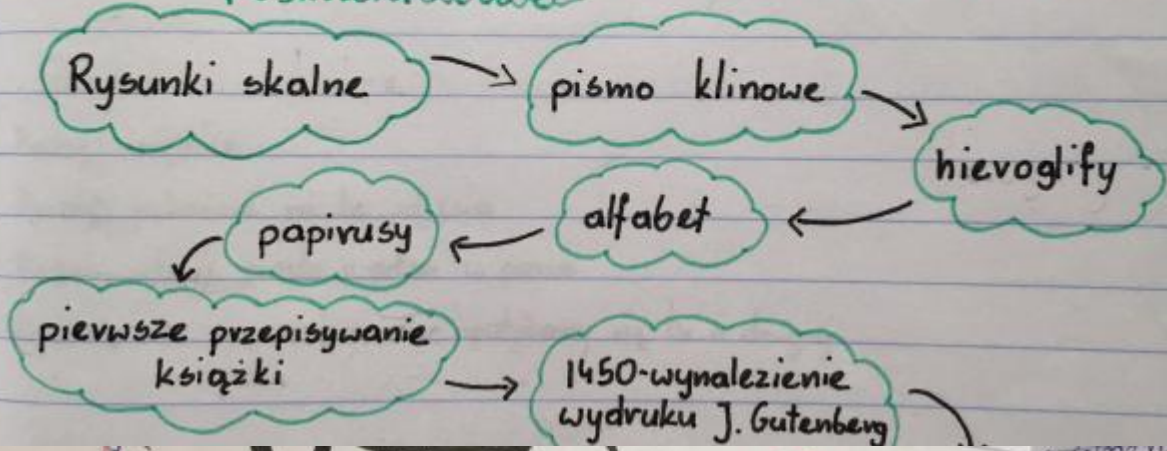 Rysunki skalne
pismo klinowe
hieroglify
alfabet
papirusy
pierwsze przepisywanie
książki
1450-wynalezienie
wydruku J. Gutenberg